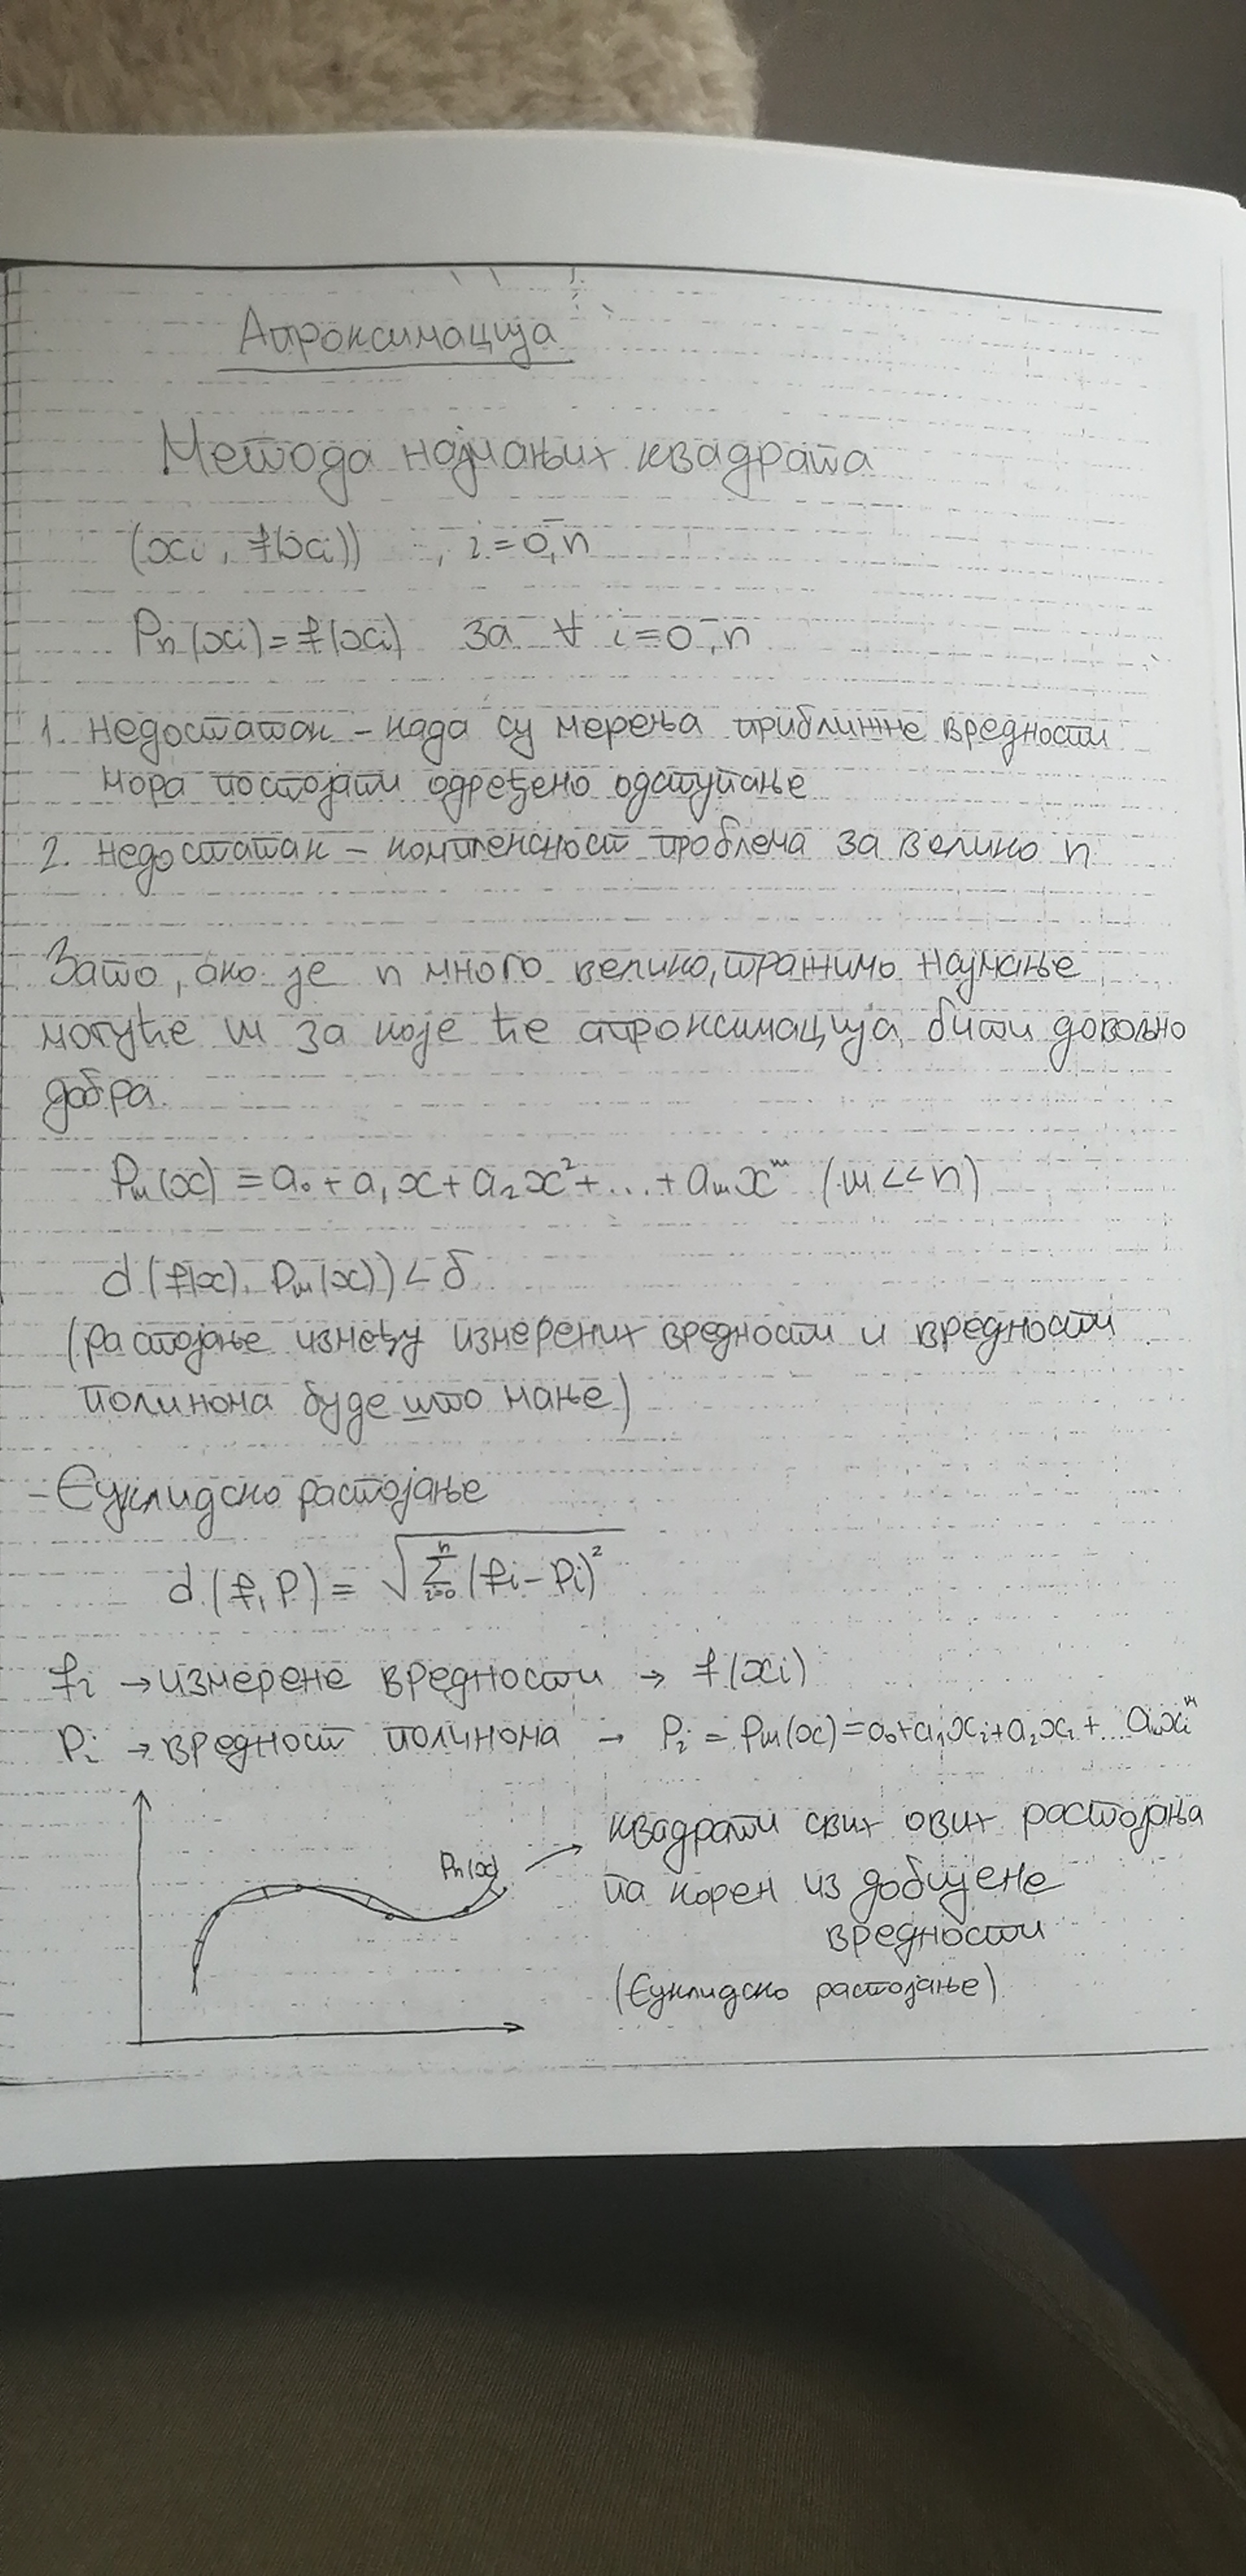 Апроксимација
Метода најмањих квадрата
(xi, f(xi)) , i=0,n̅
Pn(xi)=f(xi) за ∀ i=0,n̅
1. недостатак - када су мерења приближне вредности
мора постојати одређено одступање
2. недостатак - комплексност проблема за велико n
Зато, ако је n много велико, тражимо најмање
могуће m за које ће апроксимација бити довољно
добра.
Pm(x) = a0 + a1x + a2x² + ... + amx^m (m<<n)
d(f(x), Pm(x)) < δ
(растојање између измерених вредности и вредности
полинома буде што мање)
- Еуклидско растојање
d(f,P) = √∑_{i=0}^{n}(fi-Pi)²
fi → измерене вредности → f(xi)
Pi → вредност полинома → Pi = Pm(x) = a0+a1xi+a2xi+...amxi^m
Pn(x) → квадрати свих ових растојања
па корен из добијене
вредности
(Еуклидско растојање)